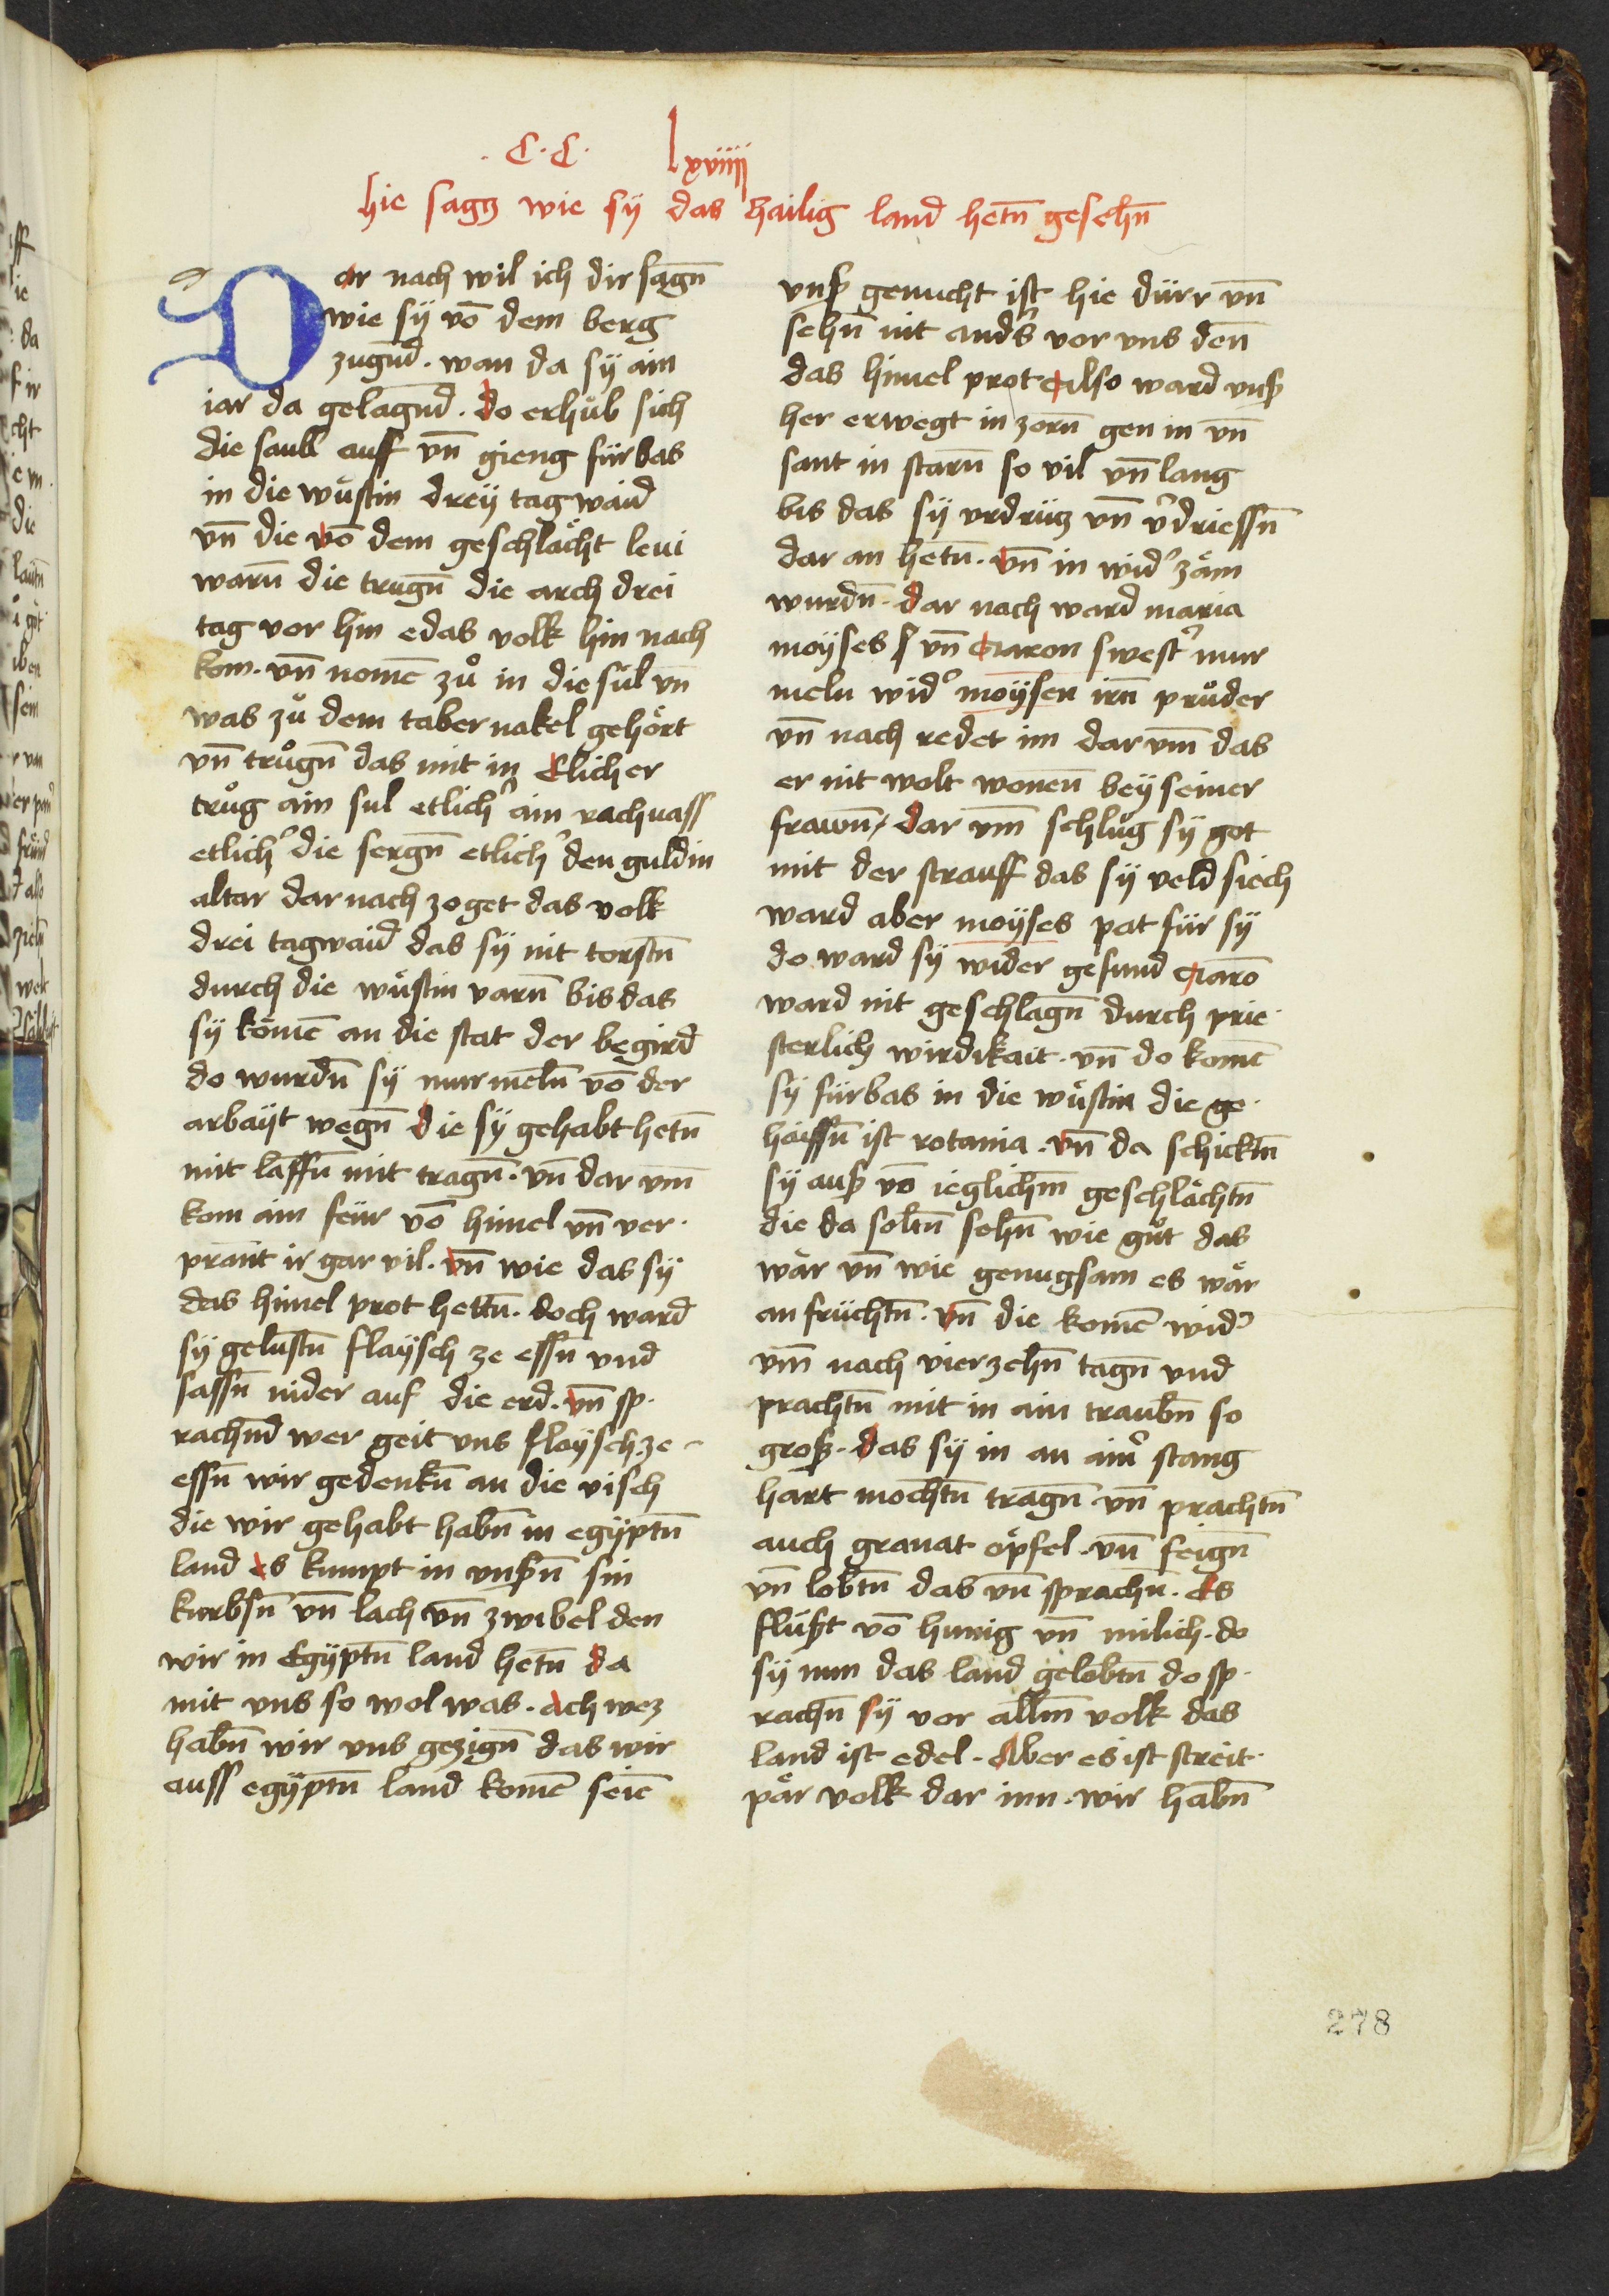 .C.C. lxviiij
hie sagꝫ wie sÿ das hailig land hetn̄ gesehn̄
Dar nach wil ich dir sagn̄
wie sÿ vō dem berg
zugnd̄. wan da sÿ ain
iar da gelagnd̄. do erhůb sich
die saul auff vn̄ gieng fürbas
in die wůstin dreÿ tag waid
vn̄ die vō dem geschlächt leui
warn̄ die trugn̄ die arch drei
tag vor hin e das volk hin nach
kom. vn̄ nomē zů in die sül vn̄
was zů dem tabernakel gehört
vn̄ trůgn̄ das mit in Etlicher
trůg ain sul etlich᾿ ain rachuass
etlich᾿ die sergn̄ etlich᾿ den guldin
altar dar nach zoget das volk
drei tagwaid das sÿ nit torstn̄
durch die wůstin varn̄ bis das
sÿ kömē an die stat der begird
do wurdn̄ sÿ murmeln̄ vō der
arbaÿt wegn̄ die sÿ gehabt hetn̄
mit lassn̄ mit tragn̄. vn̄ dar vm̄
kom ain feür vō himel vn̄ ver.
prant ir gar vil. vn̄ wie das sÿ
das himel prot hettn̄. doch ward
sÿ gelustn̄ flaÿsch ze essn̄ vnd
sassn̄ nider auf die erd. vn̄ sp.
rachnd̄ wer geit vns flaÿsch ze
essn̄ wir gedenkn̄ an die visch
die wir gehabt habn̄ in egÿptn̄
land es kumpt in vnsßn̄ sin
kurbsn̄ vn̄ lach vn̄ zwibel den
wir in Egÿptn̄ land hetn̄ da
mit vns so wol was. ach wez
habn̄ wir vns gezign̄ das wir
auss egÿptn̄ land komē seiē
vnß genucht ist hie dürr vn̄
sehn̄ nit and᾿s vor vns den̄
das himel prot Also ward vnß
her erwegt in zorn̄ gen in vn̄
sant in starn̄ so vil vn̄ lang
bis das sÿ vrdrüz vn̄ v᾿driessn̄
dar an hetn̄. vn̄ in wid᾿ zäm
wurdn̄. dar nach ward maria
moÿses s vn̄ Aaron swest᾿ mur
meln wid᾿ moÿsen irn̄ průder
vn̄ nach redet im dar vm̄ das
er nit wolt wonen̄ beÿ seiner
frawn̄. dar vm̄ schlůg sÿ got
mit der strauff das sÿ veld siech
ward aber moÿses pat für sÿ
do ward sÿ wider gesund Aarō
ward nit geschlagn̄ durch prie.
sterlich wirdikait. vn̄ do komē
sÿ fürbas in die wůstin die ge.
haissn̄ ist rotania. vn̄ da schicktn̄
sÿ auß vō ieglichm̄ geschlächtn̄
die da soltn̄ sehn̄ wie gůt das
wär vn̄ wie genugsam es wär
an früchtn̄. vn̄ die komē wid᾿
vm̄ nach vierzehn̄ tagn̄ vnd
prachtn̄ mit in ain traubn̄ so
groß. das sÿ in an ain᾿ stang
hart mochtn̄ tragn̄ vn̄ prachtn̄
auch granat öpfel. vn̄ feign̄
vn̄ lobtn̄ das vn̄ sprachn̄. Es
flüßt vō hunig vn̄ milich. do
sÿ nun das land gelobtn̄ do sp.
rachn̄ sÿ vor allm̄ volk das
land ist edel. Aber es ist streit.
pär volk dar inn. wir habn̄
278